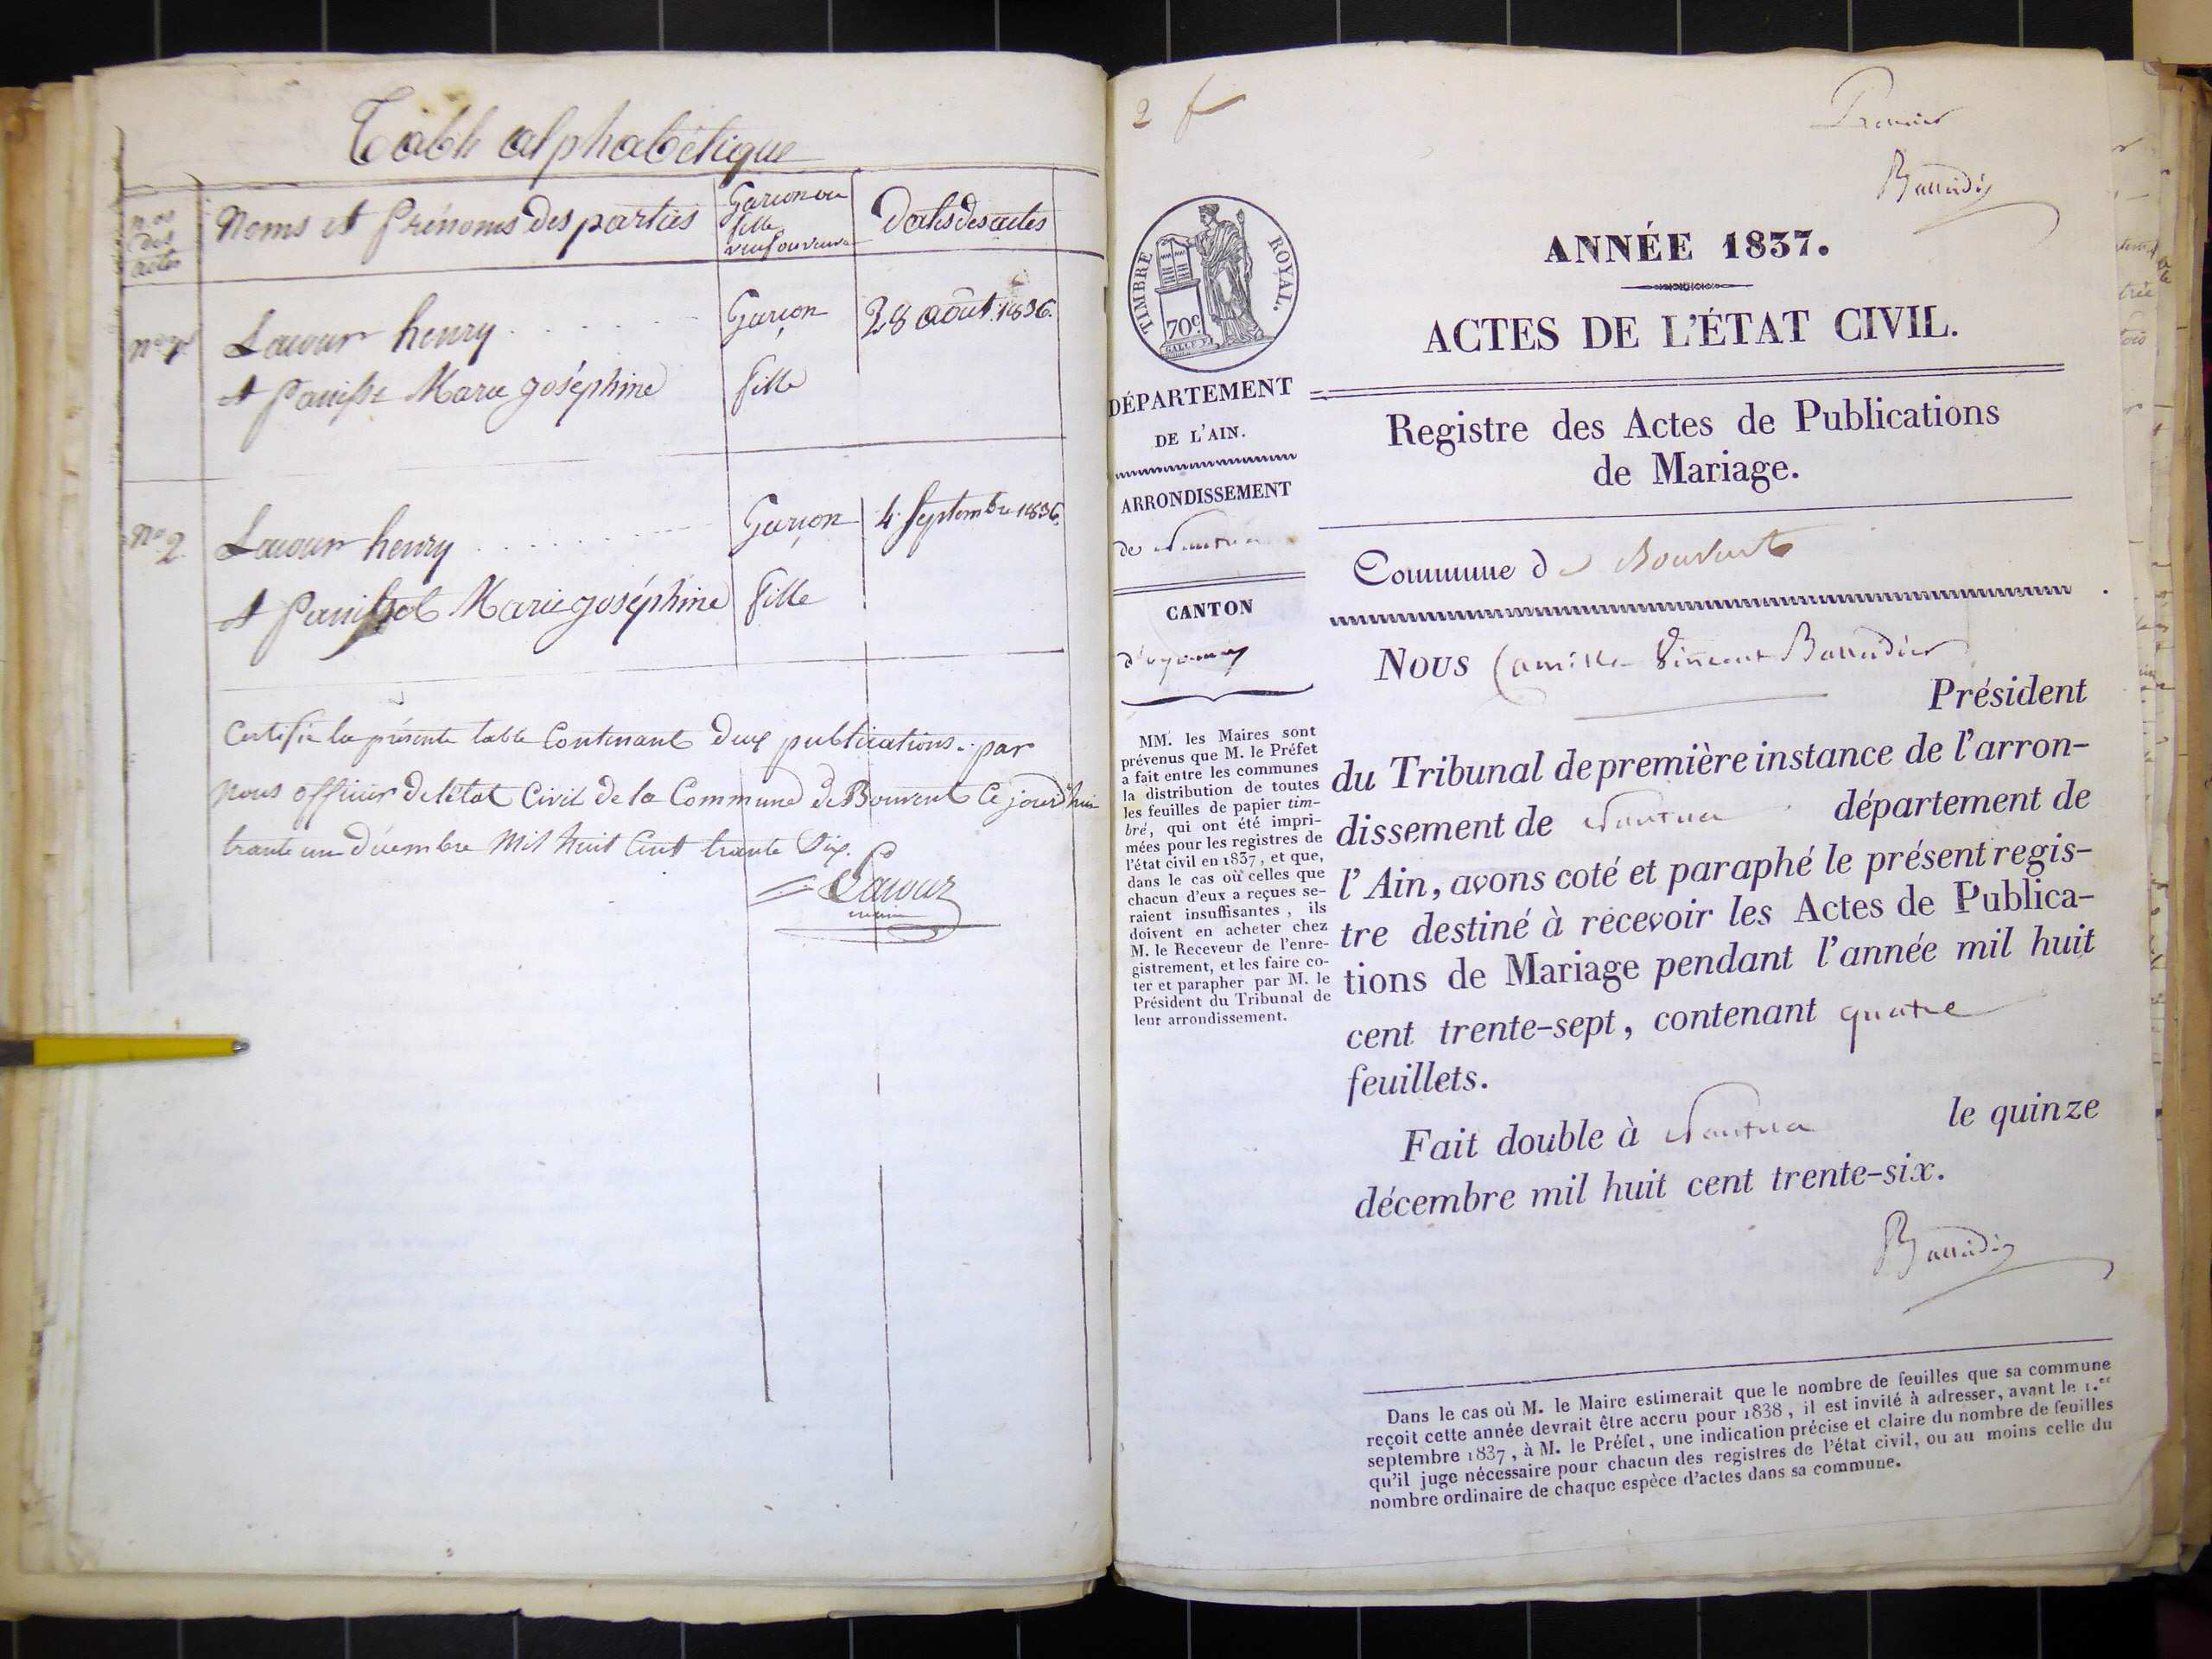 Table alphabétique
nos
des
actes
Noms et Prénoms des parties
Garçon ou
fille
veuf ou veuve
Dates des actes
n° 1
Lacour henry
Garçon
28 août 1836.
et Panisse Marie joséphine
fille
N° 2
Lacour henry
Garçon
4 Septembre 1836.
et Marie joséphine
fille
Certifié la présente table Contenant deux publications par
nous officier de létat Civil de la Commune de Bouvent Ce jourd'hui
trante un décembre Mil huit Cent trante Six.
Lacour
maire
2 f
Premier
TIMBRE ROYAL.
70c
GALLE F.
DÉPARTEMENT
DE L'AIN.
ARRONDISSEMENT
de Nantua
CANTON
d'oyonnax
MM. les Maires sont
prévenus que M. le Préfet
a fait entre les communes
la distribution de toutes
les feuilles de papier tim-
bré, qui ont été impri-
mées pour les registres de
l'état civil en 1837, et que,
dans le cas où celles que
chacun d'eux a reçues se-
raient insuffisantes, ils
doivent en acheter chez
M. le Receveur de l'enre-
gistrement, et les faire co-
ter et parapher par M. le
Président du Tribunal de
leur arrondissement.
ANNÉE 1837.
ACTES DE L'ÉTAT CIVIL.
Registre des Actes de Publications
de Mariage.
Commune de Bouvent
NOUS Camille Vincent
Président
du Tribunal de première instance de l'arron-
dissement de Nantua département de
l'Ain, avons coté et paraphé le présent regis-
tre destiné à recevoir les Actes de Publica-
tions de Mariage pendant l'année mil huit
cent trente-sept, contenant quatre
feuillets.
Fait double à Nantua le quinze
décembre mil huit cent trente-six.
Dans le cas où M. le Maire estimerait que le nombre de feuilles que sa commune
reçoit cette année devrait être accru pour 1838, il est invité à adresser, avant le 1.er
septembre 1837, à M. le Préfet, une indication précise et claire du nombre de feuilles
qu'il juge nécessaire pour chacun des registres de l'état civil, ou au moins celle du
nombre ordinaire de chaque espèce d'actes dans sa commune.